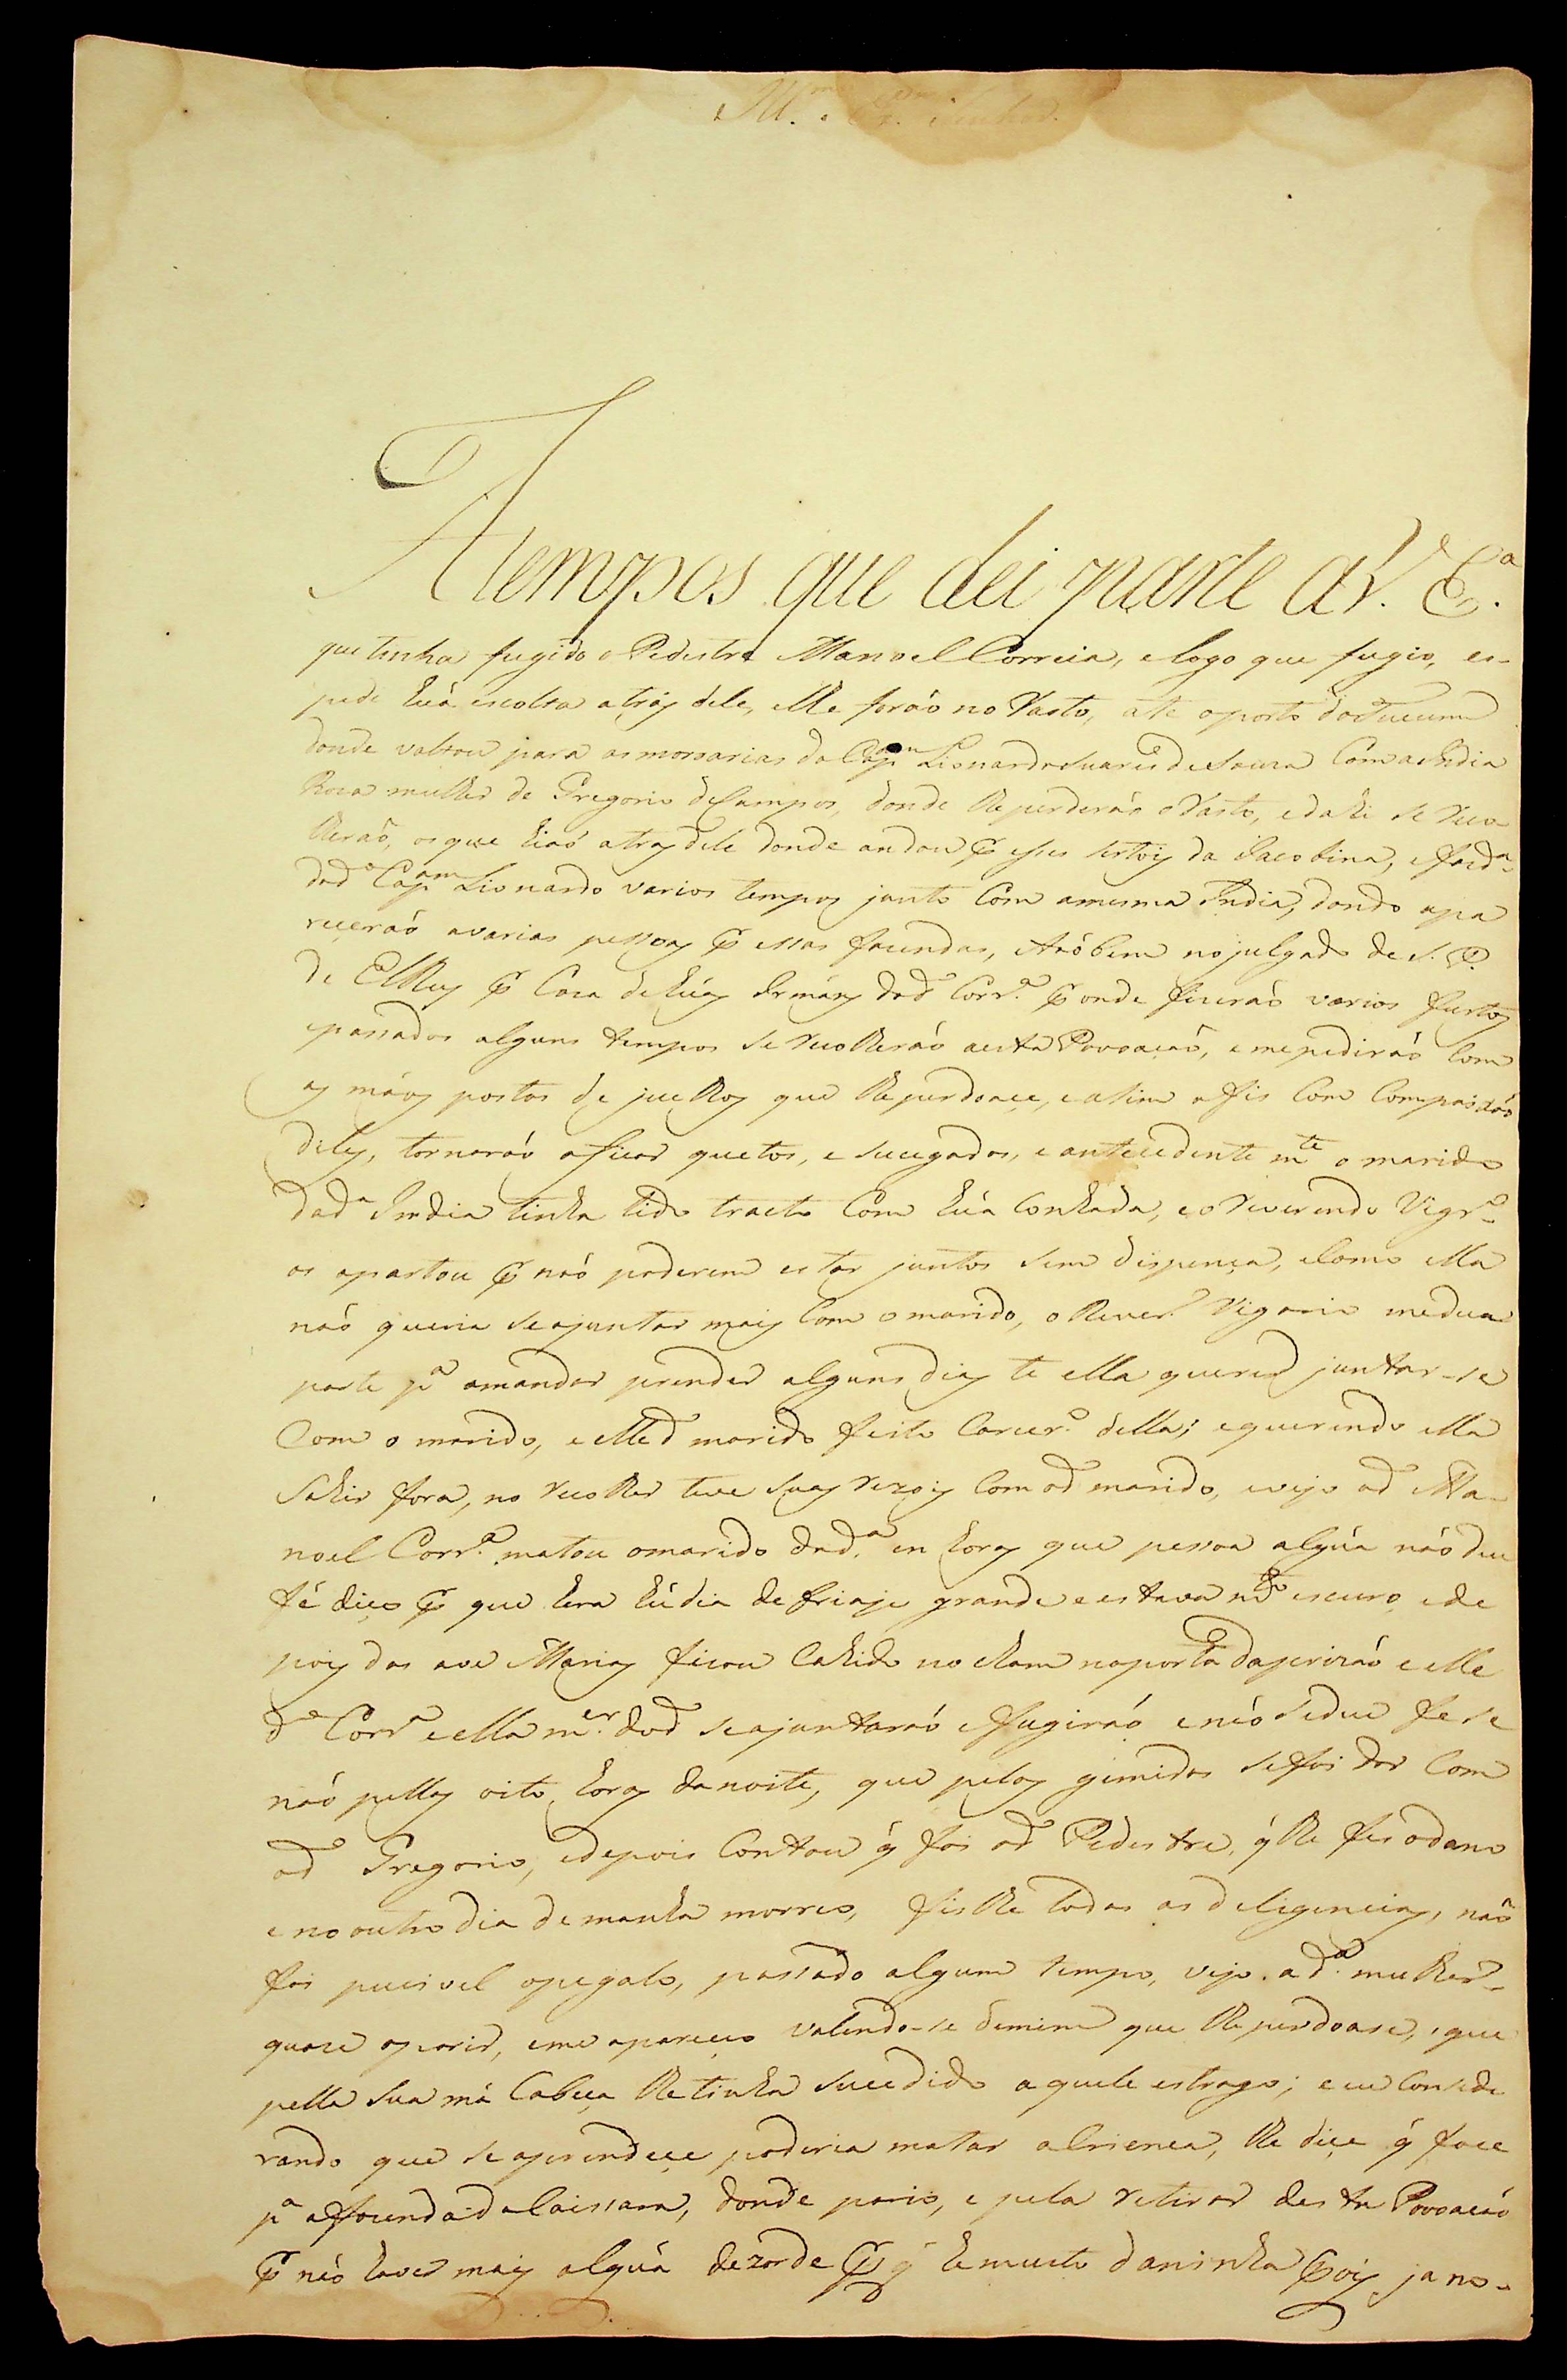 Ill.mo e Ex.mo Senhor.
A tempos que dei parte a V. Ex.ª
que tinha fugido o Pedestre Manoel Correia, e logo que fugio, es-
pedi huá escolta atráz déle, e lhe foráo no Rasto, ate o porto do Tucum
donde voltou para as morarias do Cap.am Lionardo Suares de Souza Com a India
Roza mulher de Gregorio de Campos, donde lhe perderáo o Rasto, e dahi se reco-
lheraõ, os que hiaó atraz dele donde andou por esses sertoiz da Jacobina, e fazd.ª
do d.º Cap.am Lionardo varios tempos junto Com a mesma India, dondo apa
reçeraó a varias pessoaz por essas fazendas, e taóbem no julgado de S. P.
de ElRey por Caza de húaz Irmáaz do d.º Corr.ª por onde fizeraó varios furtoz
e passados alguns tempos se recolheraó a esta Povoaçaó, e me pediráo Com
as máoz postas de juelhoz que lhe perdoaçe, e assim o fis Com Compaixáo
delez, tornaraó a ficar quetos, e sucegados, e antecedente m.te o marido
da d.ª India tinha tido tracto Com huá Conhada, e o Reverendo Vigr.º
os apartou por naó poderem estar juntos sem dispença, e Como ella
naó queria se ajuntar maiz Com o marido, o Rever.do Vigario me deu
parte p.ª a mandar prender alguns diaz te ella querer juntar-se
Com o marido, e elle d.º marido feito Carcer.º della; e querendo ella
Sahir fora, no recolher teve suaz rezoiz Com o d.º marido, e vejo o d.º Ma-
noel Corr.ª matou o marido da d.ª en horaz que pessoa algúa náo deu
fé diço por que hera hú dia de friaje grande e estava m.to escuro, e de
poiz das ave Mariaz ficou Cahido no cham na porta da prizáo e elle
d.º Corr.ª e ella m.er do d.º se ajuntaraó e fugiráo, e náo se deu fe se
náo pellaz oito horaz da noite, que peloz gimidos se foi dar Com
o d.º Gregorio, e depois Contou q́ foi o d.º Pedestre, q́ lhe fes o dano
e no outro dia de manha morreo, fislhe todas as deligenciaz, naõ
foi pucivel o pegalo, passado algum tempo, vejo a d.ª mulher
quaze a parir, e me apareçeo valendo-se de mim que lhe perdoase, que
pella sua má Cabeça lhe tinha sucedido aquele estrago; e eu Conside
rando que se a prendeçe poderia matar a Crienca, lhe diçe q́ foce
p.ª a fazenda da Caissara, donde pario, e pela retirar desta Povoaçaó
por náo haver maiz algúa dezorde por q́ he muito daninha poiz ja no-